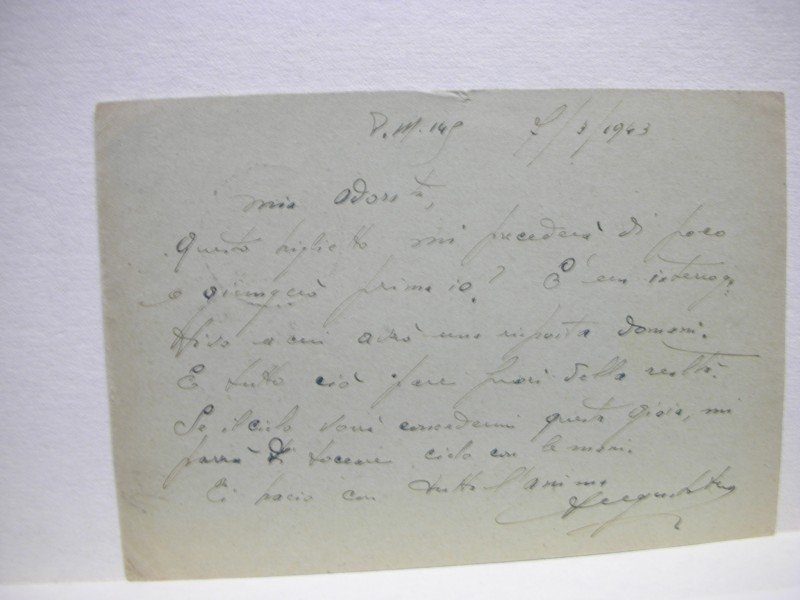 P.M. 145 7/3/1943
Mia adorata,
Questo biglietto mi precederà di poco
o giungerò prima io? È un interroga-
tivo a cui avrò una risposta domani.
E tutto ciò pare fuori della realtà.
Se il cielo vorrà concedermi questa gioia, mi
parrà di toccare cielo con le mani.
Ti bacio con tutta l'anima